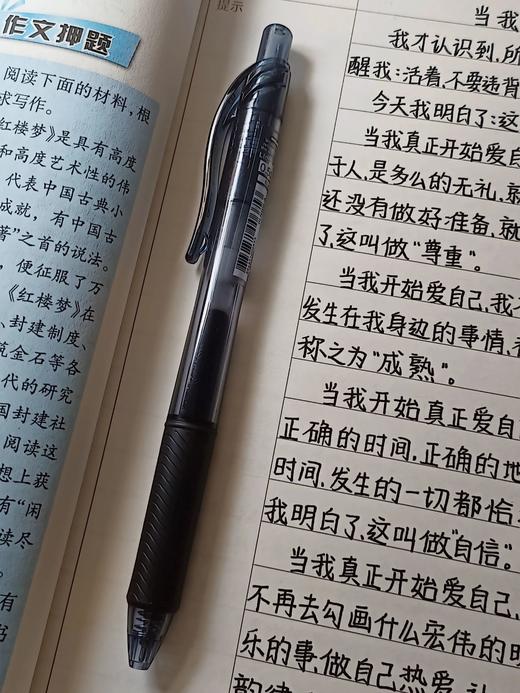 提示
作文押题
阅读下面的材料，根
求写作。
红楼梦》是具有高度
和高度艺术性的伟
代表中国古典小
成就，有中国古
著”之首的说法。
，便征服了万
《红楼梦》在
、封建制度、
筑金石等各
代的研究
国封建社
阅读这
想上获
有“闲
读尽
有
书
当我
我才认识到，所
醒我：活着，不要违背
今天我明白了：这
当我真正开始爱自
于人，是多么的无礼，就
还没有做好准备，就
了，这叫做“尊重”。
当我开始爱自己，我不
发生在我身边的事情，
称之为“成熟”。
当我开始真正爱自
正确的时间，正确的地
时间，发生的一切都恰
我明白了，这叫做“自信”。
当我真正开始爱自己，
不再去勾画什么宏伟的明
乐的事，做自己热爱，
韵律